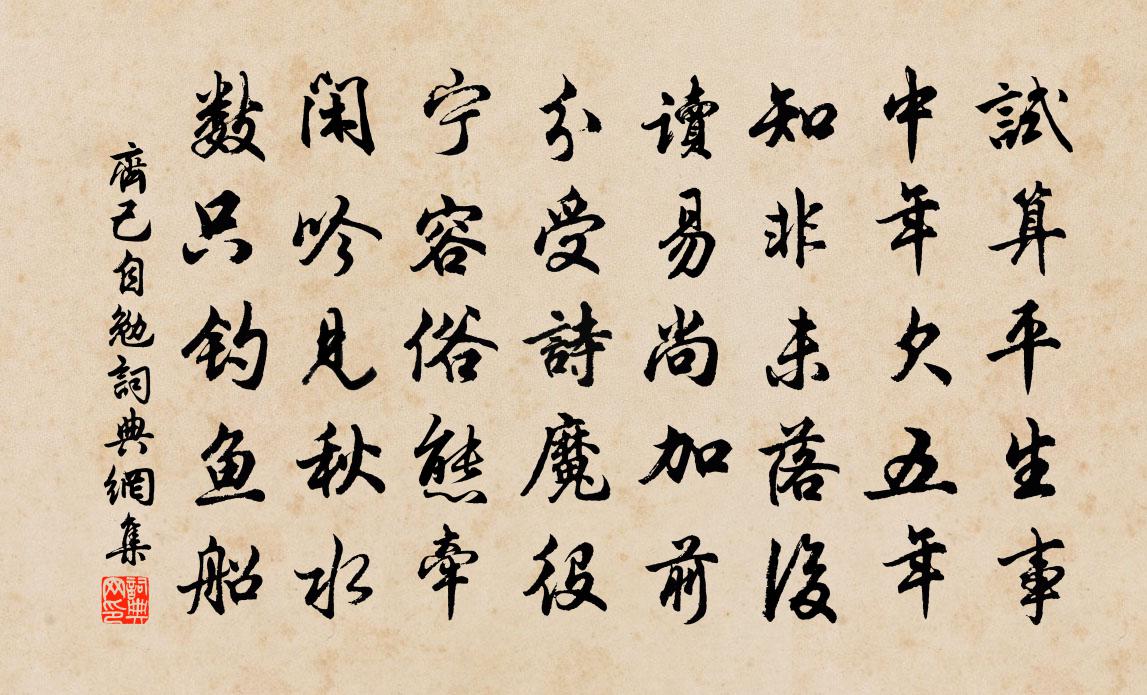 試算平生事
中年欠五年
知非未落後
讀易尚加前
分受詩魔役
宁容俗態牽
閑吟見秋水
数只釣鱼船
齊己自勉詞典網集
詞典
网印